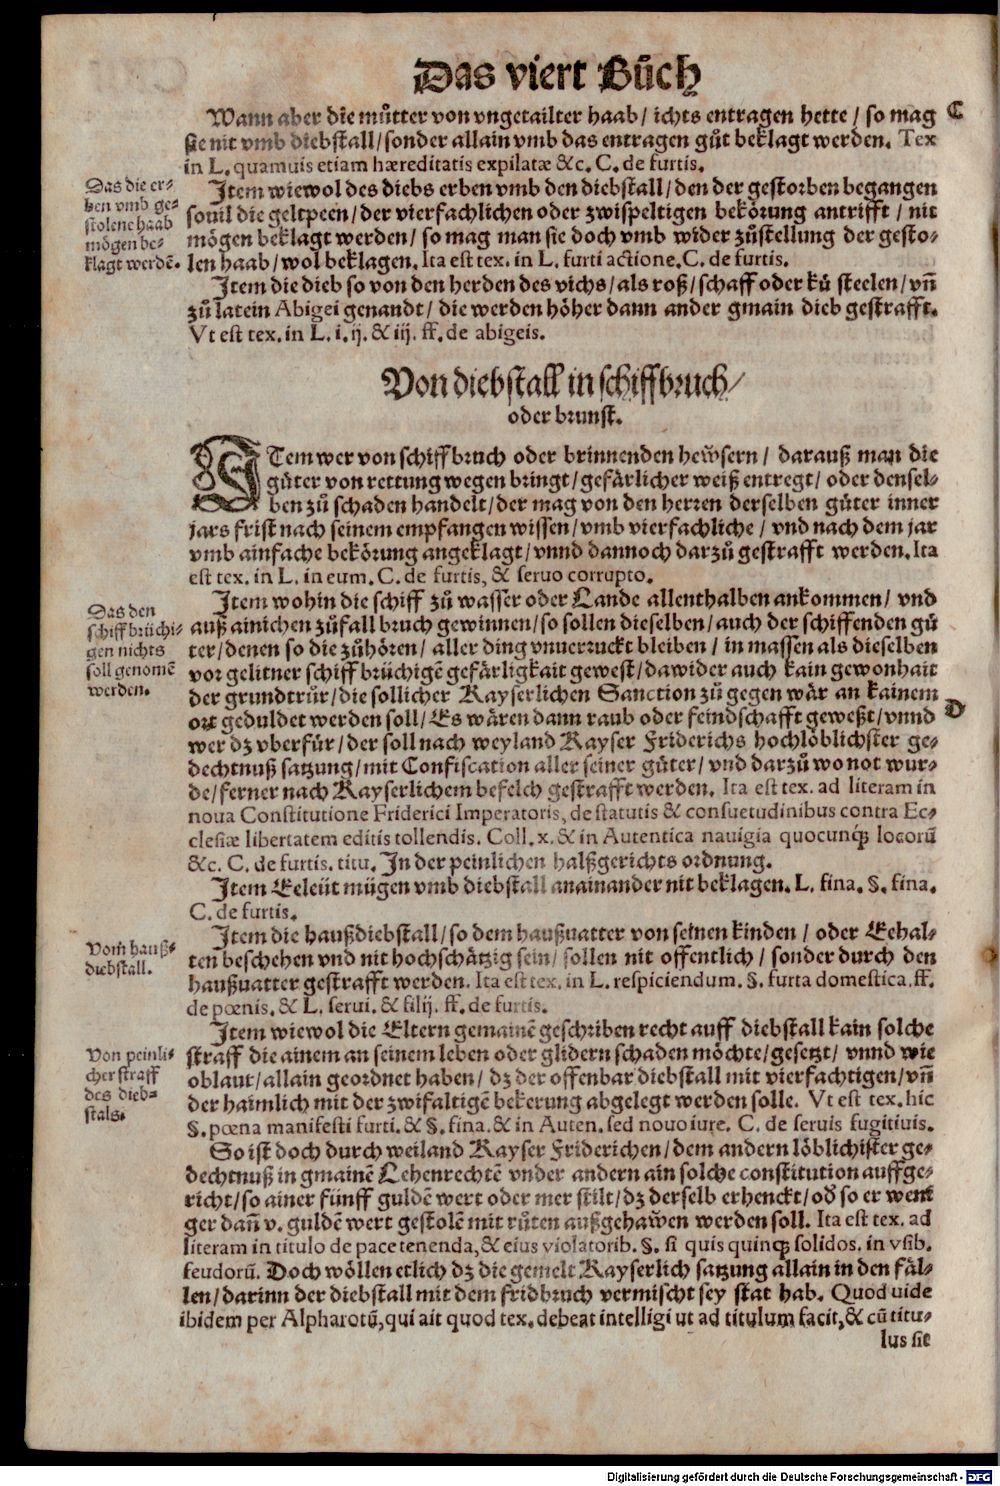 Das viert Bůch
Wann aber die můtter von vngetailter haab/ ichts entragen hette/ so mag C
sie nit vmb diebstall/sonder allain vmb das entragen gůt beklagt werden. Tex
in L. quamuis etiam hæreditatis expilatæ &c. C. de furtis.
Das die er-
ben vmb ge-
stolene haab
mögen be-
klagt werdẽ.
Item wiewol des diebs erben vmb den diebstall/den der gestorben begangen
souil die geltpeen/der vierfachlichen oder zwispeltigen bekörung antrifft/ nit
mögen beklagt werden/ so mag man sie doch vmb wider zůstellung der gesto-
len haab/wol beklagen. Ita est tex. in L. furti actione. C. de furtis.
Item die dieb so von den herden des vichs/als roß/schaff oder kü steelen/vñ
zů latein Abigei genandt/ die werden höher dann ander gmain dieb gestrafft.
Vt est tex. in L. i. ij. & iij. ff. de abigeis.
Von diebstall in schiffbruch/
oder brunst.
ITem wer von schiffbruch oder brinnenden hewsern/ darauß man die
güter von rettung wegen bringt/gefärlicher weiß entregt/ oder densel-
ben zů schaden handelt/der mag von den herren derselben güter inner
jars frist nach seinem empfangen wissen/vmb vierfachliche/ vnd nach dem jar
vmb ainfache bekörung angeklagt/vnnd dannoch darzů gestrafft werden. Ita
est tex. in L. in eum. C. de furtis, & seruo corrupto.
Das den
schiffbrüchi-
gen nichts
soll genomẽ
werden.
Item wohin die schiff zů wasser oder Lande allenthalben ankommen/ vnd
auß ainichen zůfall bruch gewinnen/so sollen dieselben/auch der schiffenden gü
ter/denen so die zůhören/ aller ding vnuerruckt bleiben/ in massen als dieselben
vor gelitner schiffbrüchigẽ gefärligkait gewest/dawider auch kain gewonhait
der grundtrůr/die sollicher Kayserlichen Sanction zů gegen wär an kainem
ort geduldet werden soll/Es wären dann raub oder feindschafft geweßt/vnnd D
wer dz vberfür/der soll nach weyland Kayser Friderichs hochlöblichster ge-
dechtnuß satzung/mit Confiscation aller seiner güter/ vnd darzů wo not wur-
de/ferner nach Kayserlichem befelch gestrafft werden. Ita est tex. ad literam in
noua Constitutione Friderici Imperatoris, de statutis & consuetudinibus contra Ec-
clesiæ libertatem editis tollendis. Coll. x. & in Autentica nauigia quocunq́; locorũ
&c. C. de furtis. titu. In der peinlichen halßgerichts ordnung.
Item Eeleüt mügen vmb diebstall anainander nit beklagen. L. fina. §. fina.
C. de furtis.
Vom̃ hauß-
diebstall.
Item die haußdiebstall/so dem haußuatter von seinen kinden/ oder Eehal-
ten beschehen vnd nit hochschätzig sein/ sollen nit offentlich/ sonder durch den
haußuatter gestrafft werden. Ita est tex. in L. respiciendum. §. furta domestica. ff.
de pœnis. & L. serui. & filij. ff. de furtis.
Von peinli-
cher straff
des dieb-
stals.
Item wiewol die Eltern gemainẽ geschriben recht auff diebstall kain solche
straff die ainem an seinem leben oder glidern schaden möchte/gesetzt/ vnnd wie
oblaut/allain geordnet haben/ dz der offenbar diebstall mit vierfachtigen/vñ
der haimlich mit der zwifaltigẽ bekerung abgelegt werden solle. Vt est tex. hic
§. pœna manifesti furti. & §. fina. & in Auten. sed nouo iure. C. de seruis fugitiuis.
So ist doch durch weiland Kayser Friderichen/dem andern löblichister ge-
dechtnuß in gmainẽ Lehenrechtẽ vnder andern ain solche constitution auffge-
richt/so ainer fünff guldẽ wert oder mer stilt/dz derselb erhenckt/oď so er weni
ger dañ v. guldẽ wert gestolẽ mit růten außgehawen werden soll. Ita est tex. ad
literam in titulo de pace tenenda, & eius violatorib. §. si quis quinq́; solidos. in vsib.
feudorũ. Doch wöllen etlich dz die gemelt Kayserlich satzung allain in den fäl-
len/darinn der diebstall mit dem fridbruch vermischt sey stat hab. Quod uide
ibidem per Alpharotũ, qui ait quod tex. debeat intelligi ut ad titulum facit, & cũ titu-
lus sit
Digitalisierung gefördert durch die Deutsche Forschungsgemeinschaft - DFG